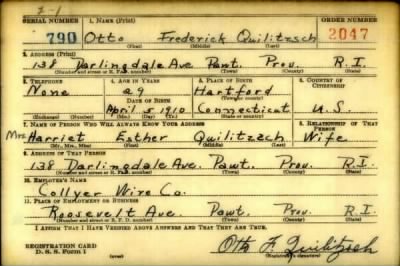 2-1
SERIAL NUMBER 1. NAME (Print) ORDER NUMBER
790 Otto Frederick Quilitzsch 2047
(First) (Middle) (Last)
2. ADDRESS (Print)
138 Darlingdale Ave. Pawt. Prov. R.I.
(Number and street or R. F. D. number) (Town) (County) (State)
3. TELEPHONE 4. AGE IN YEARS 5. PLACE OF BIRTH 6. COUNTRY OF CITIZENSHIP
None 29 Hartford
DATE OF BIRTH (Town or county)
April 5 1910 Connecticut U.S.
(Exchange) (Number) (Mo.) (Day) (Yr.) (State or country)
7. NAME OF PERSON WHO WILL ALWAYS KNOW YOUR ADDRESS 8. RELATIONSHIP OF THAT PERSON
Mrs Harriet Esther Quilitzsch Wife
(Mr., Mrs., Miss) (First) (Middle) (Last)
9. ADDRESS OF THAT PERSON
138 Darlingdale Ave. Pawt. Prov. R.I.
(Number and street or R. F. D. number) (Town) (County) (State)
10. EMPLOYER'S NAME
Collyer Wire Co.
11. PLACE OF EMPLOYMENT OR BUSINESS
Roosevelt Ave. Pawt. Prov. R.I.
(Number and street or R. F. D. number) (Town) (County) (State)
I AFFIRM THAT I HAVE VERIFIED ABOVE ANSWERS AND THAT THEY ARE TRUE.
REGISTRATION CARD
D. S. S. Form 1
Otto F. Quilitzsch
(Registrant's signature)